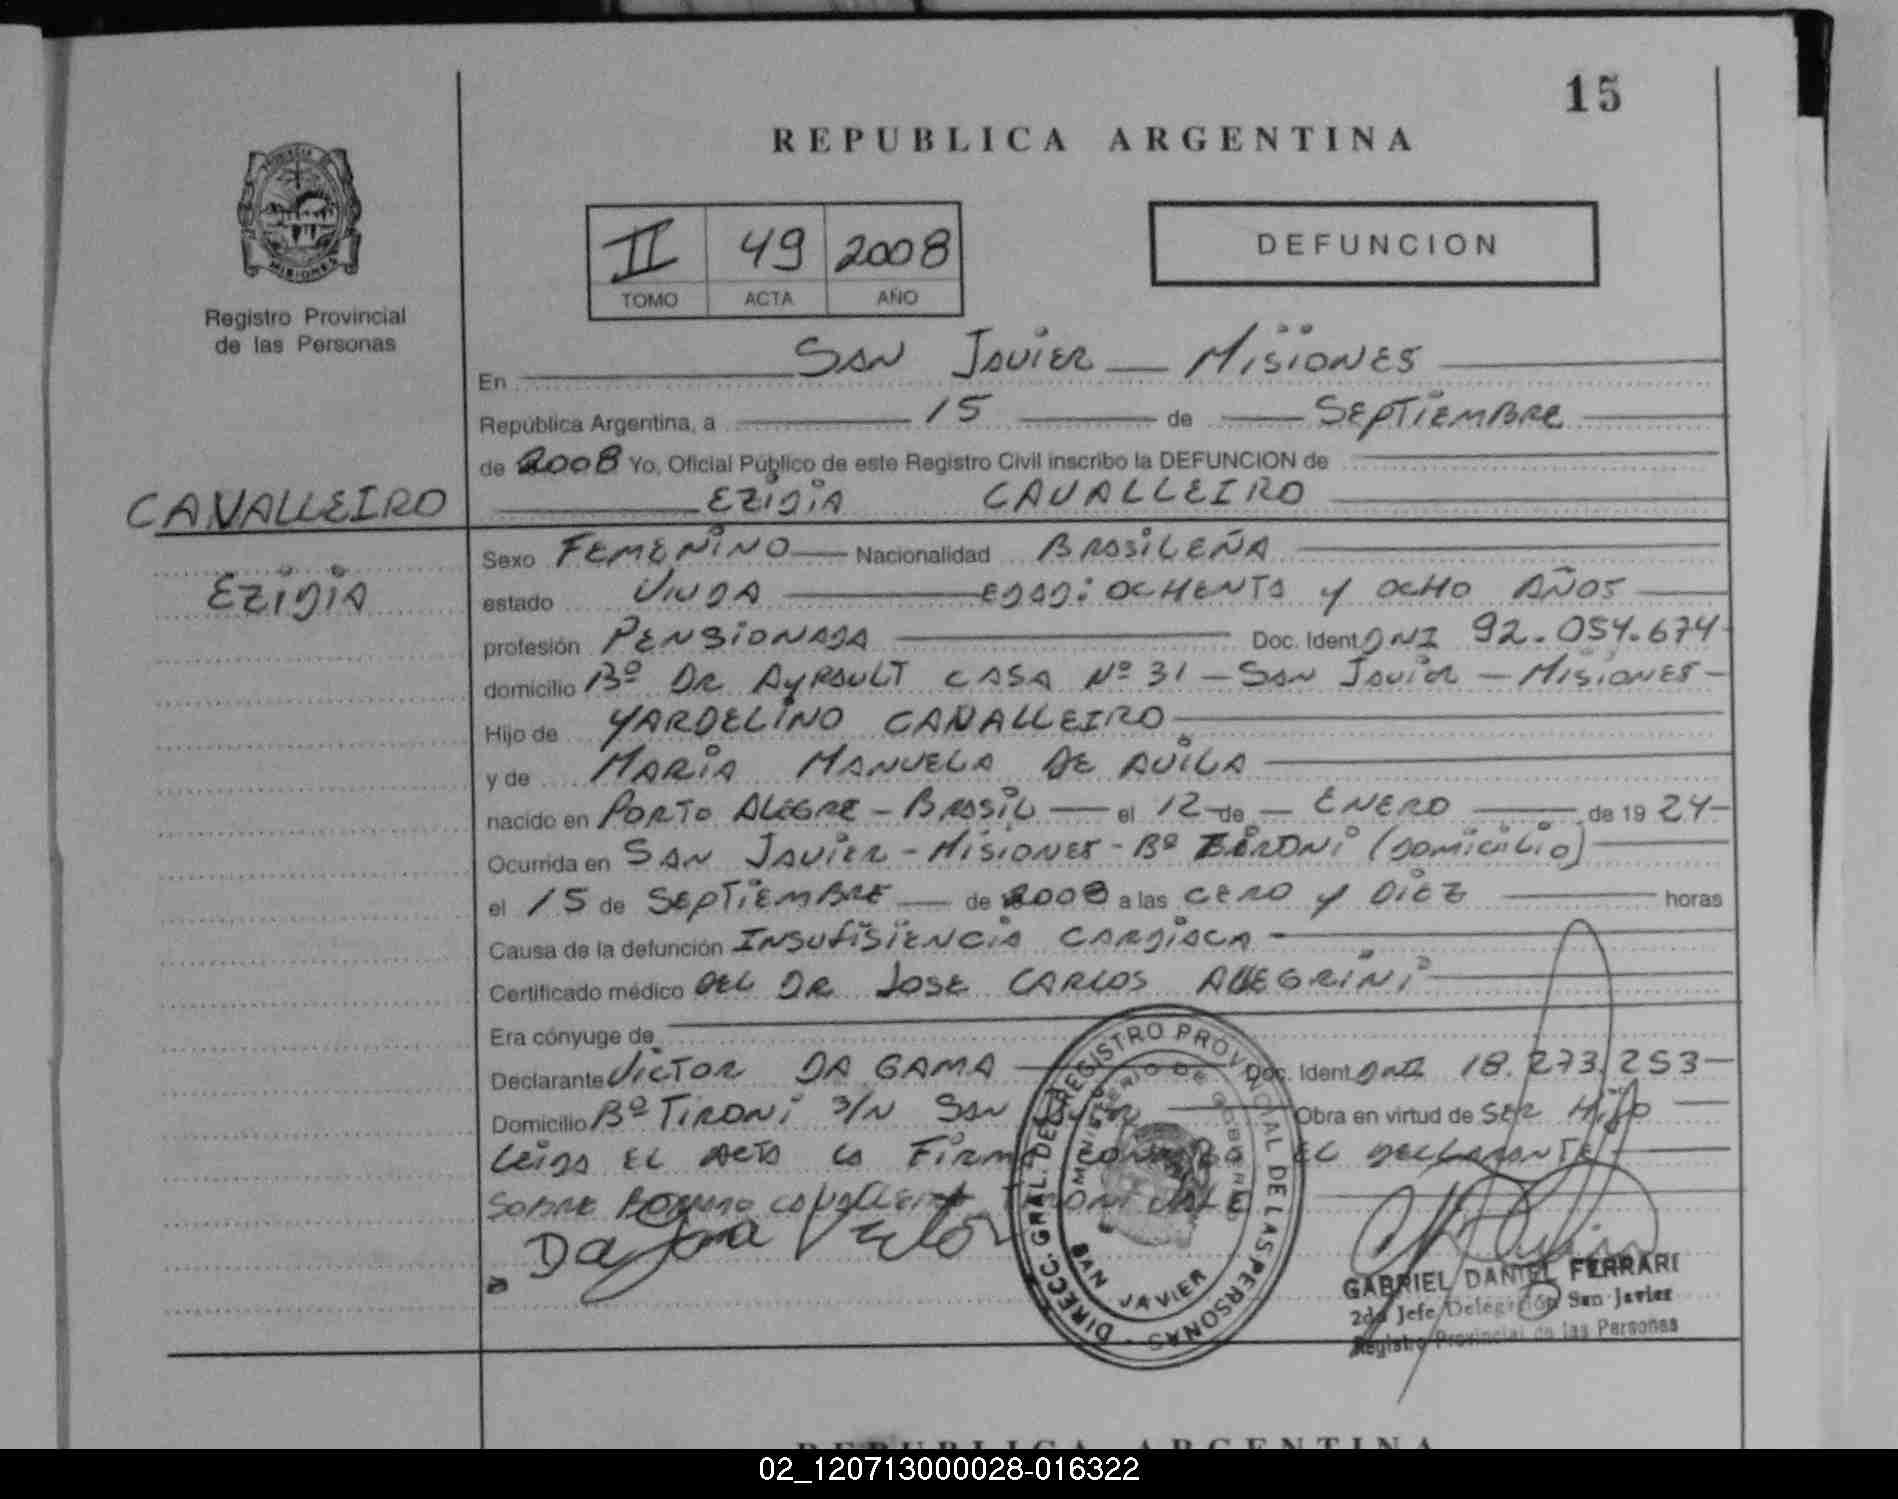 15
REPUBLICA ARGENTINA
PROVINCIA DE
MISIONES
Registro Provincial
de las Personas
II 49 2008
TOMO ACTA AÑO
DEFUNCION
En SAN JAVIER — MISIONES
República Argentina, a 15 de SEPTIEMBRE
de 2008 Yo, Oficial Público de este Registro Civil inscribo la DEFUNCION de
CAVALLEIRO
EZIDIA CAVALLEIRO
EZIDIA
Sexo FEMENINO — Nacionalidad BRASILEÑA
estado VIUDA — EDAD: OCHENTA Y OCHO AÑOS
profesión PENSIONADA Doc. Ident DNI 92.054.674
domicilio Bº DR AYRAULT CASA Nº 31 - SAN JAVIER - MISIONES -
Hijo de YARDELINO CAVALLEIRO
y de MARIA MANUELA DE AVILA
nacido en PORTO ALEGRE - BRASIL — el 12 de — ENERO — de 19 24-
Ocurrida en SAN JAVIER - MISIONES - Bº TIRONI (DOMICILIO)
el 15 de SEPTIEMBRE — de 2008 a las CERO Y DIEZ horas
Causa de la defunción INSUFISIENCIA CARDIACA -
Certificado médico DEL DR JOSE CARLOS ALLEGRINI
Era cónyuge de
Declarante VICTOR DA GAMA Doc. Ident DNI 18.273.253-
Domicilio Bº TIRONI S/N SAN JAVIER Obra en virtud de SER HIJO
LEIDA EL ACTA LA FIRMA EL DECLARANTE
SOBRE VALE
Da Gama Victor
DIRECC. GRAL. DEL REGISTRO PROVINCIAL DE LAS PERSONAS
MINISTERIO DE GOBIERNO
SAN JAVIER
GABRIEL DANIEL FERRARI
2do Jefe Delegación San Javier
Registro Provincial de las Personas
REPUBLICA ARGENTINA
02_120713000028-016322